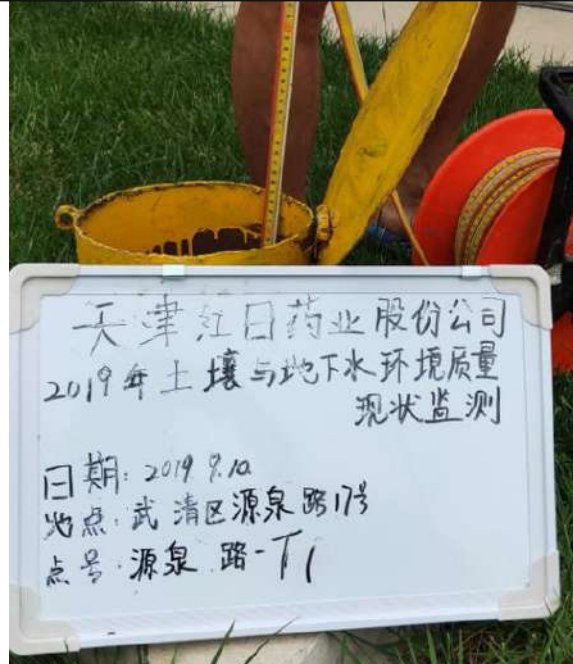 天津红日药业股份公司
2019年土壤与地下水环境质量
现状监测
日期:2019 9.10
地点:武清区源泉路17号
点号:源泉路-T1